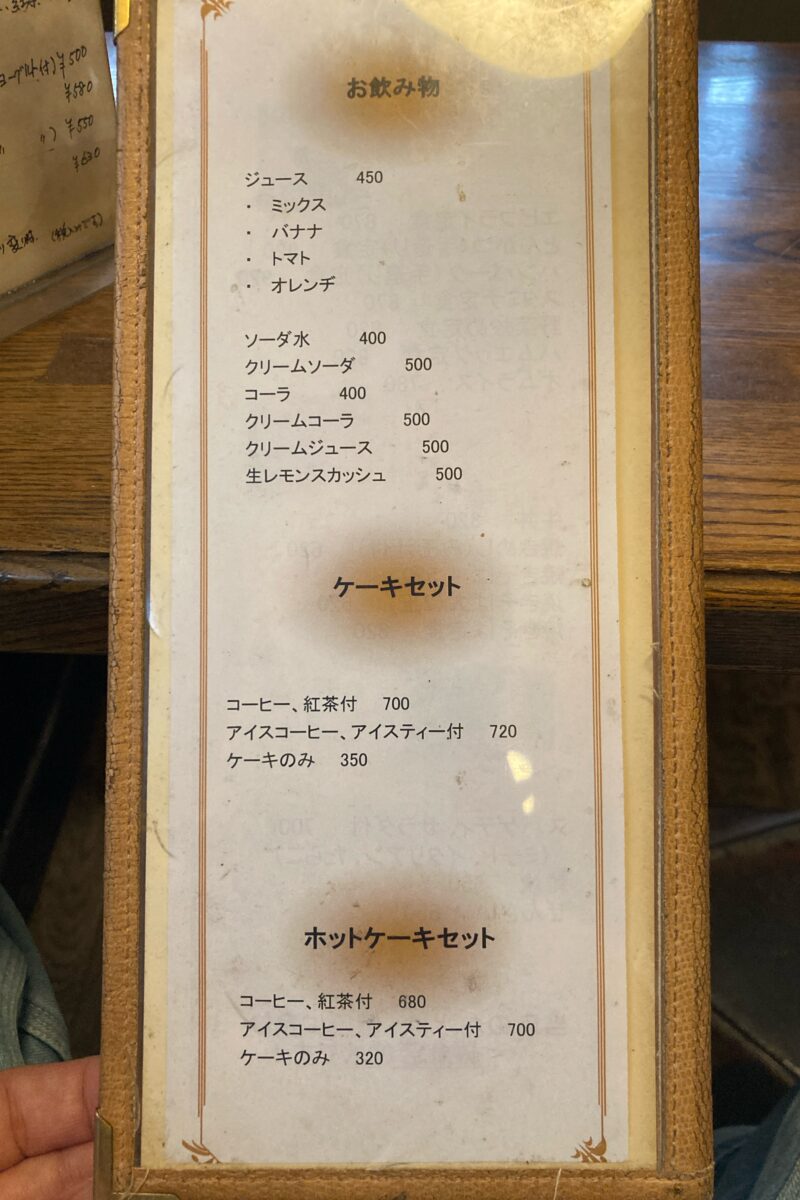 ヨーグルト付)¥500
¥580
〃)¥550
¥630
お飲み物
ジュース 450
・ ミックス
・ バナナ
・ トマト
・ オレンヂ
ソーダ水 400
クリームソーダ 500
コーラ 400
クリームコーラ 500
クリームジュース 500
生レモンスカッシュ 500
ケーキセット
コーヒー、紅茶付 700
アイスコーヒー、アイスティー付 720
ケーキのみ 350
ホットケーキセット
コーヒー、紅茶付 680
アイスコーヒー、アイスティー付 700
ケーキのみ 320